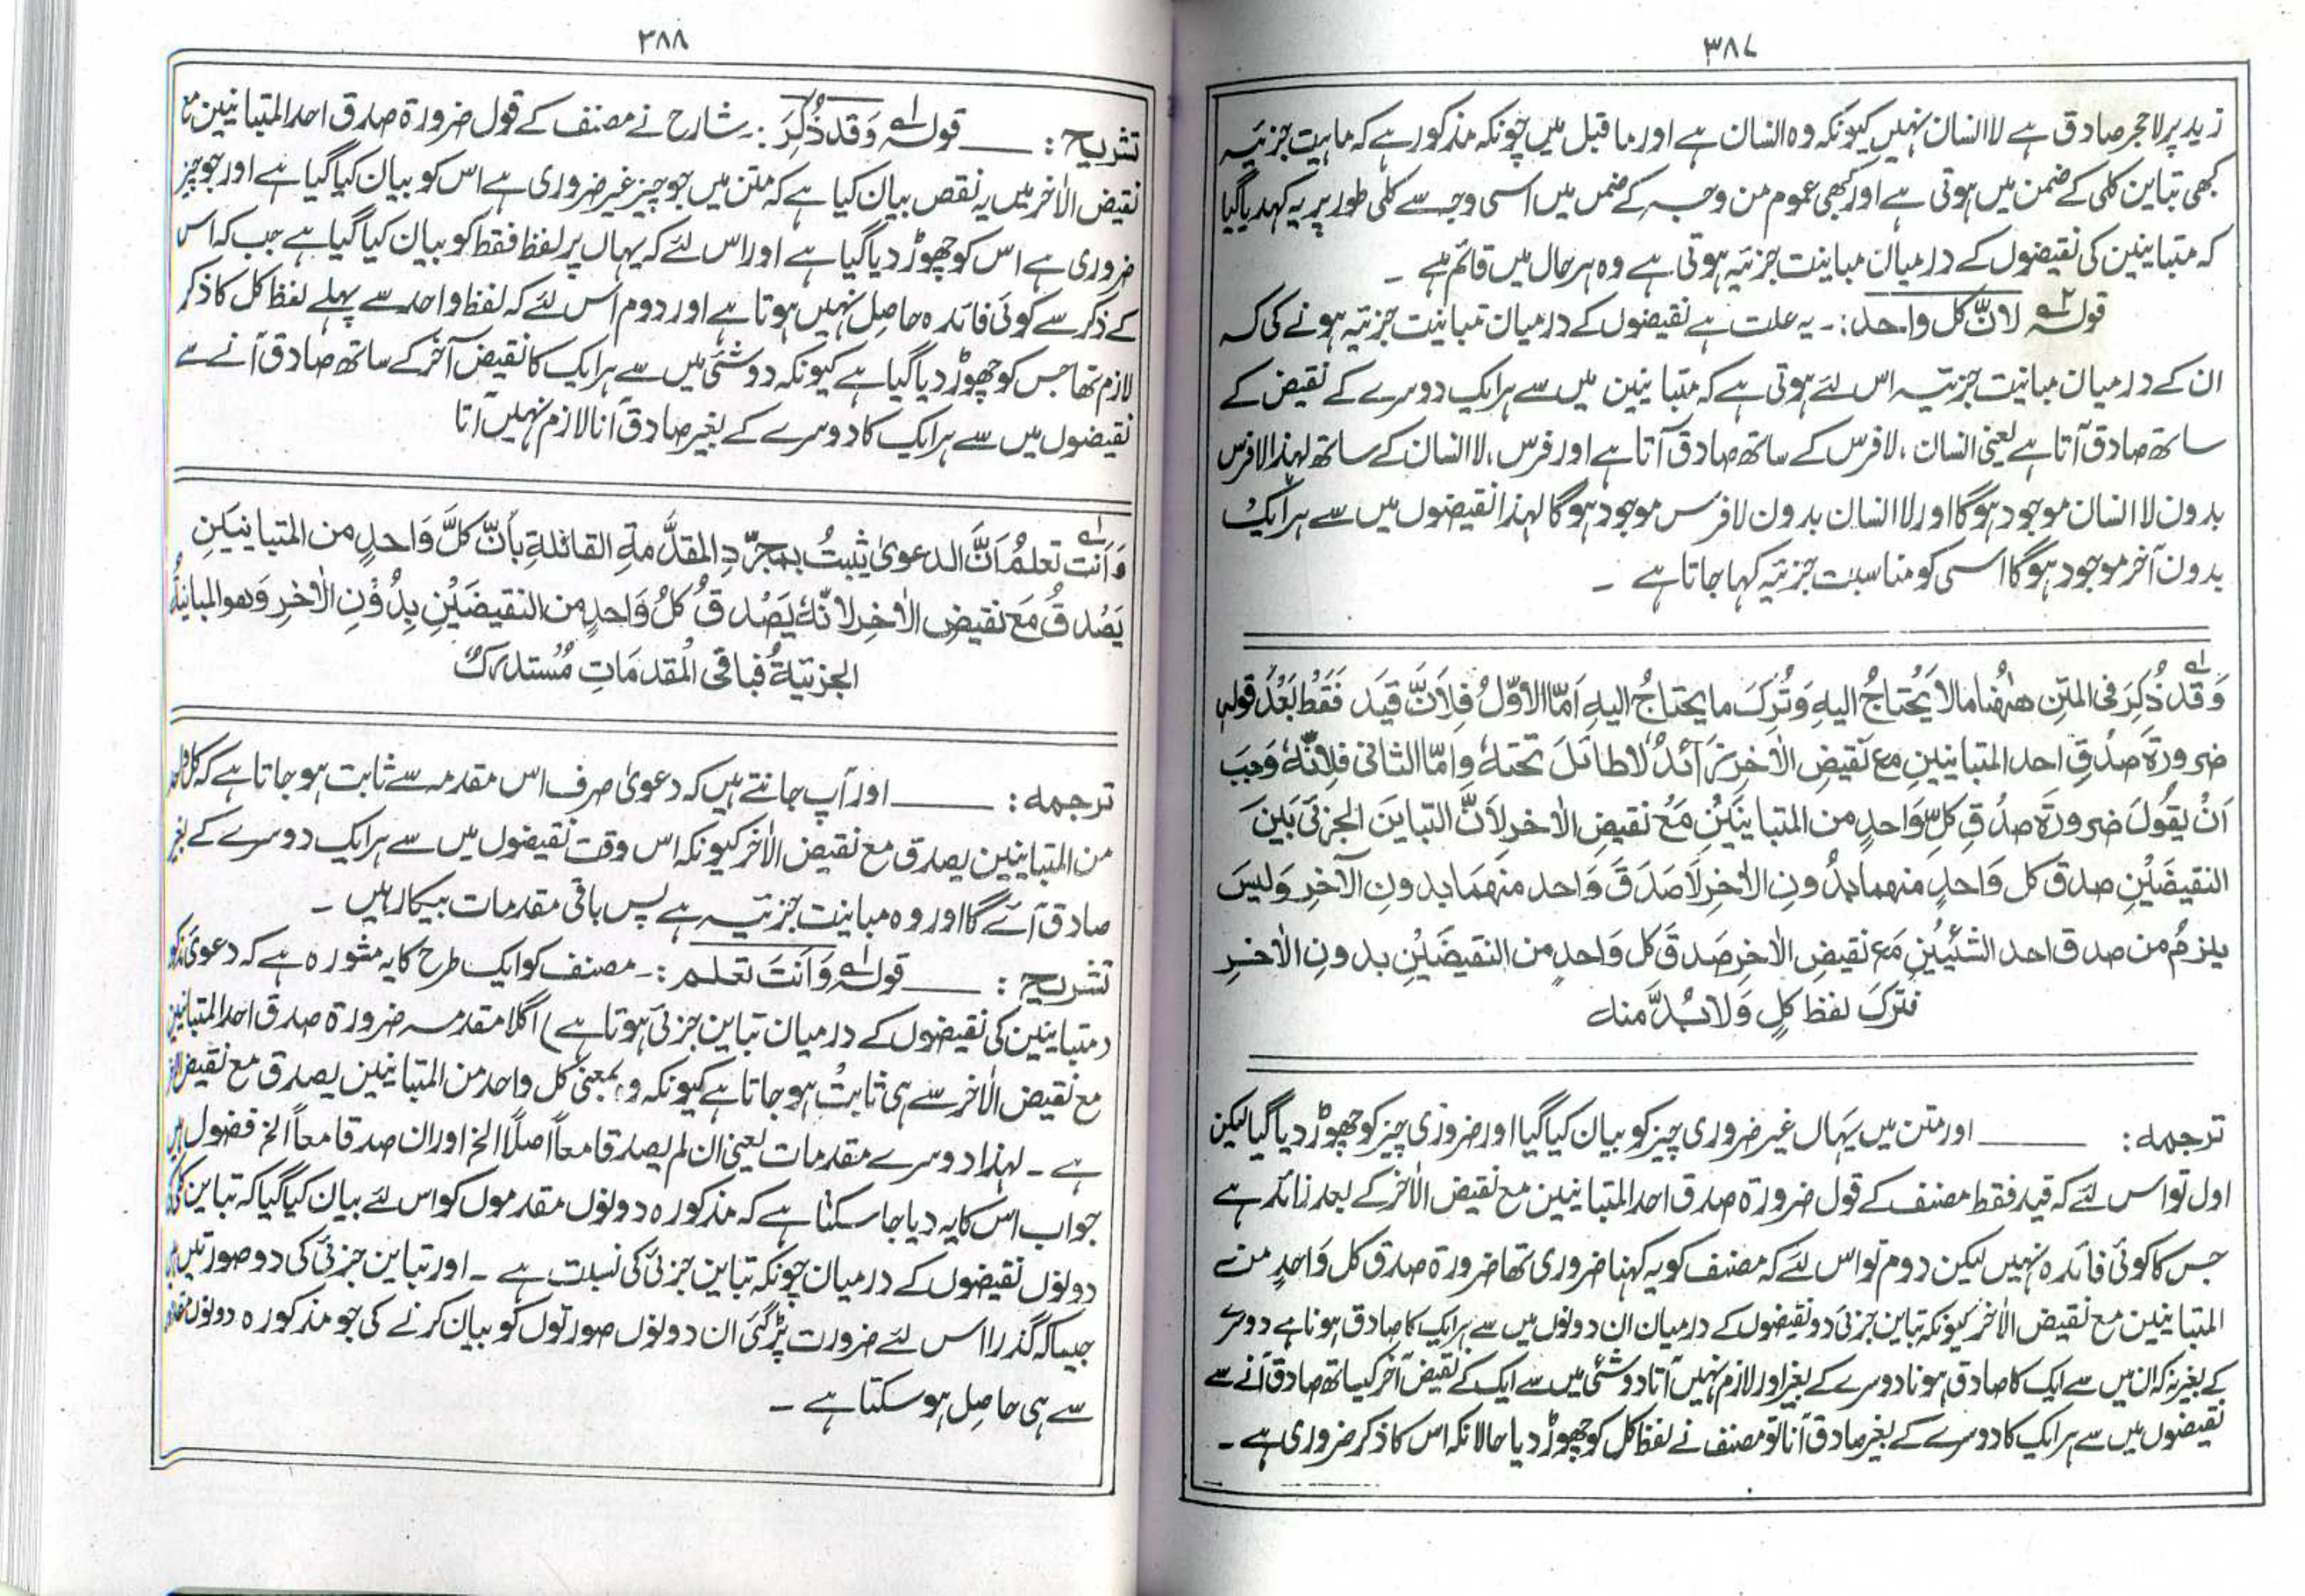 ۳۸۷
زید پر لاحجر صادق ہے لاانسان نہیں کیونکہ وہ انسان ہے اور ماقبل میں چونکہ مذکور ہے کہ ماہیت جزئیہ
کبھی تباین کلی کے ضمن میں ہوتی ہے اور کبھی عموم من وجہ کے ضمن میں اسی وجہ سے کلی طور پر یہ کہدیا گیا
کہ متباینین کی نقیضوں کے درمیان مباینت جزئیہ ہوتی ہے وہ ہر حال میں قائم ہے ۔
قولہ ۲؎ لانّ کل واحد:۔ یہ علت ہے نقیضوں کے درمیان تمبانیت جزئیہ ہونے کی کہ
ان کے درمیان مباینت جزئیہ اس لئے ہوتی ہے کہ متباینین میں سے ہر ایک دوسرے کے نقیض کے
ساتھ صادق آتا ہے یعنی انسان، لافرس کے ساتھ صادق آتا ہے اور فرس، لاانسان کے ساتھ لہذا لافرس
بدون لاانسان موجود ہوگا اور لاانسان بدون لافرس موجود ہوگا لہذا نقیضوں میں سے ہر ایک
بدون آخر موجود ہوگا اسی کو مناسبت جزئیہ کہا جاتا ہے ۔
وَقَدْ ذُکِرَ فی المتنِ ھٰھُنا مالا یُحْتاجُ الیہِ وَتُرِکَ ما یحتاجُ الیہِ اَمّا الاوّلُ فَلِاَنَّ قیَدَ فَقَطْ بَعْدَ قولہٖ
ضرورۃَ صِدْقِ احد المتباینینِ مع نقیضِ الاٰخرِ زَائدٌ لا طائلَ تحتہٗ وامّا الثانی فلانّہٗ وَجَبَ
اَنْ یقُولَ ضرورۃَ صِدْقِ کلِّ وَاحدٍ من المتباینَیْنِ مَعْ نقیضِ الاٰخرِ لِاَنَّ التباینَ الجزئیَ بَیْنَ
النقیضَیْنِ صدقُ کل وَاحدٍ منھما بدُونِ الاٰخرِ لَا صَدَقَ وَاحد منھمَا بدونِ الآخرِ وَلیسَ
یلزمُ من صدق احد الشئیَیْنِ مَع نقیضِ الاٰخرِ صَدقَ کل وَاحدٍ من النقیضَیْنِ بدونِ الاٰخرِ
فترکَ لفظ کلٍ وَلابُدَّ منہ
ترجمہ: ــــــ اور متن میں یہاں غیر ضروری چیز کو بیان کیا گیا اور ضروری چیز کو چھوڑ دیا گیا لیکن
اول تو اس لئے کہ قید فقط مصنف کے قول ضرورۃ صدق احد المتباینین مع نقیض الاٰخر کے بعد زائد ہے
جس کا کوئی فائدہ نہیں لیکن دوم تو اس لئے کہ مصنف کو یہ کہنا ضروری تھا ضرورۃ صدق کل وَاحدٍ من
المتباینین مع نقیض الاٰخر کیونکہ تباین جزئی دو نقیضوں کے درمیان ان دونوں میں سے ہر ایک کا صادق ہونا ہے دوسرے
کے بغیر نہ کہ ان میں سے ایک کا صادق ہونا دوسرے کے بغیر اور لازم نہیں آتا دو شئی میں سے ایک کے نقیض آخر کیساتھ صادق آنے سے
نقیضوں میں سے ہر ایک کا دوسرے کے بغیر صادق آنا تو مصنف نے لفظ کل کو چھوڑ دیا حالانکہ اس کا ذکر ضروری ہے ۔
۳۸۸
تشریح: ــــــ قولہ ۱؎ وَقَد ذُکِرَ:۔ شارح نے مصنف کے قول ضرورۃ صدق احد المتباینین مع
نقیض الاٰخر میں یہ نقص بیان کیا ہے کہ متن میں جو چیز غیر ضروری ہے اس کو بیان کیا گیا ہے اور جو چیز
ضروری ہے اس کو چھوڑ دیا گیا ہے اور اس لئے کہ یہاں پر لفظ فقط کو بیان کیا گیا ہے جب کہ اس
کے ذکر سے کوئی فائدہ حاصل نہیں ہوتا ہے اور دوم اس لئے کہ لفظ واحد سے پہلے لفظ کل کا ذکر
لازم تھا جس کو چھوڑ دیا گیا ہے کیونکہ دو شئی میں سے ہر ایک کا نقیض آخر کے ساتھ صادق آنے سے
نقیضوں میں سے ہر ایک کا دوسرے کے بغیر صادق آنا لازم نہیں آتا
وَاَنْتَ تَعلمُ اَنَّ الدعویٰ یثبتُ بمجرّدِ المقدَّمۃِ القائلۃِ بأنّ کلَّ وَاحدٍ من المتبانیَیْنِ
یَصْدقُ مَع نقیضِ الاٰخرِ لانّہٗ یَصْدقُ کلُ وَاحدٍ من النقیضَیْنِ بِدُوْنِ الاٰخرِ وَھو المبانیۃُ
الجزئیۃُ فباقی المقدمَاتِ مُستدرکٌ
ترجمہ: ــــــ اور آپ جانتے ہیں کہ دعویٰ صرف اس مقدمہ سے ثابت ہو جاتا ہے کہ کل واحد
من المتباینین یصدق مع نقیض الاٰخر کیونکہ اس وقت نقیضوں میں سے ہر ایک دوسرے کے بغیر
صادق آئے گا اور وہ مباینت جزئیہ ہے پس باقی مقدمات بیکار ہیں ۔
تشریح: ــــــ قولہ ۱؎ وَاَنتَ تعلم:۔ مصنف کو ایک طرح کا یہ مشورہ ہے کہ دعویٰ مذکور
(متباینین کی نقیضوں کے درمیان تباین جزئی ہوتا ہے) اگلا مقدمہ ضرورۃ صدق احد المتباینین
مع نقیض الاٰخر سے ہی ثابت ہو جاتا ہے کیونکہ وہ بمعنی کل واحد من المتباینین یصدق مع نقیض الاٰخر
ہے ۔ لہذا دوسرے مقدمات یعنی ان لم یصدقا معاً اصلاً الخ اور ان صدقا معاً الخ فضول ہیں
جواب اس کا یہ دیا جا سکتا ہے کہ مذکورہ دونوں مقدموں کو اس لئے بیان کیا گیا کہ تباین کلی
دونوں نقیضوں کے درمیان چونکہ تباین جزئی کی نسبت ہے ۔ اور تباین جزئی کی دو صورتیں ہیں
جیسا کہ گذرا اس لئے ضرورت پڑ گئی ان دونوں صورتوں کو بیان کرنے کی جو مذکورہ دونوں
سے ہی حاصل ہو سکتا ہے ۔